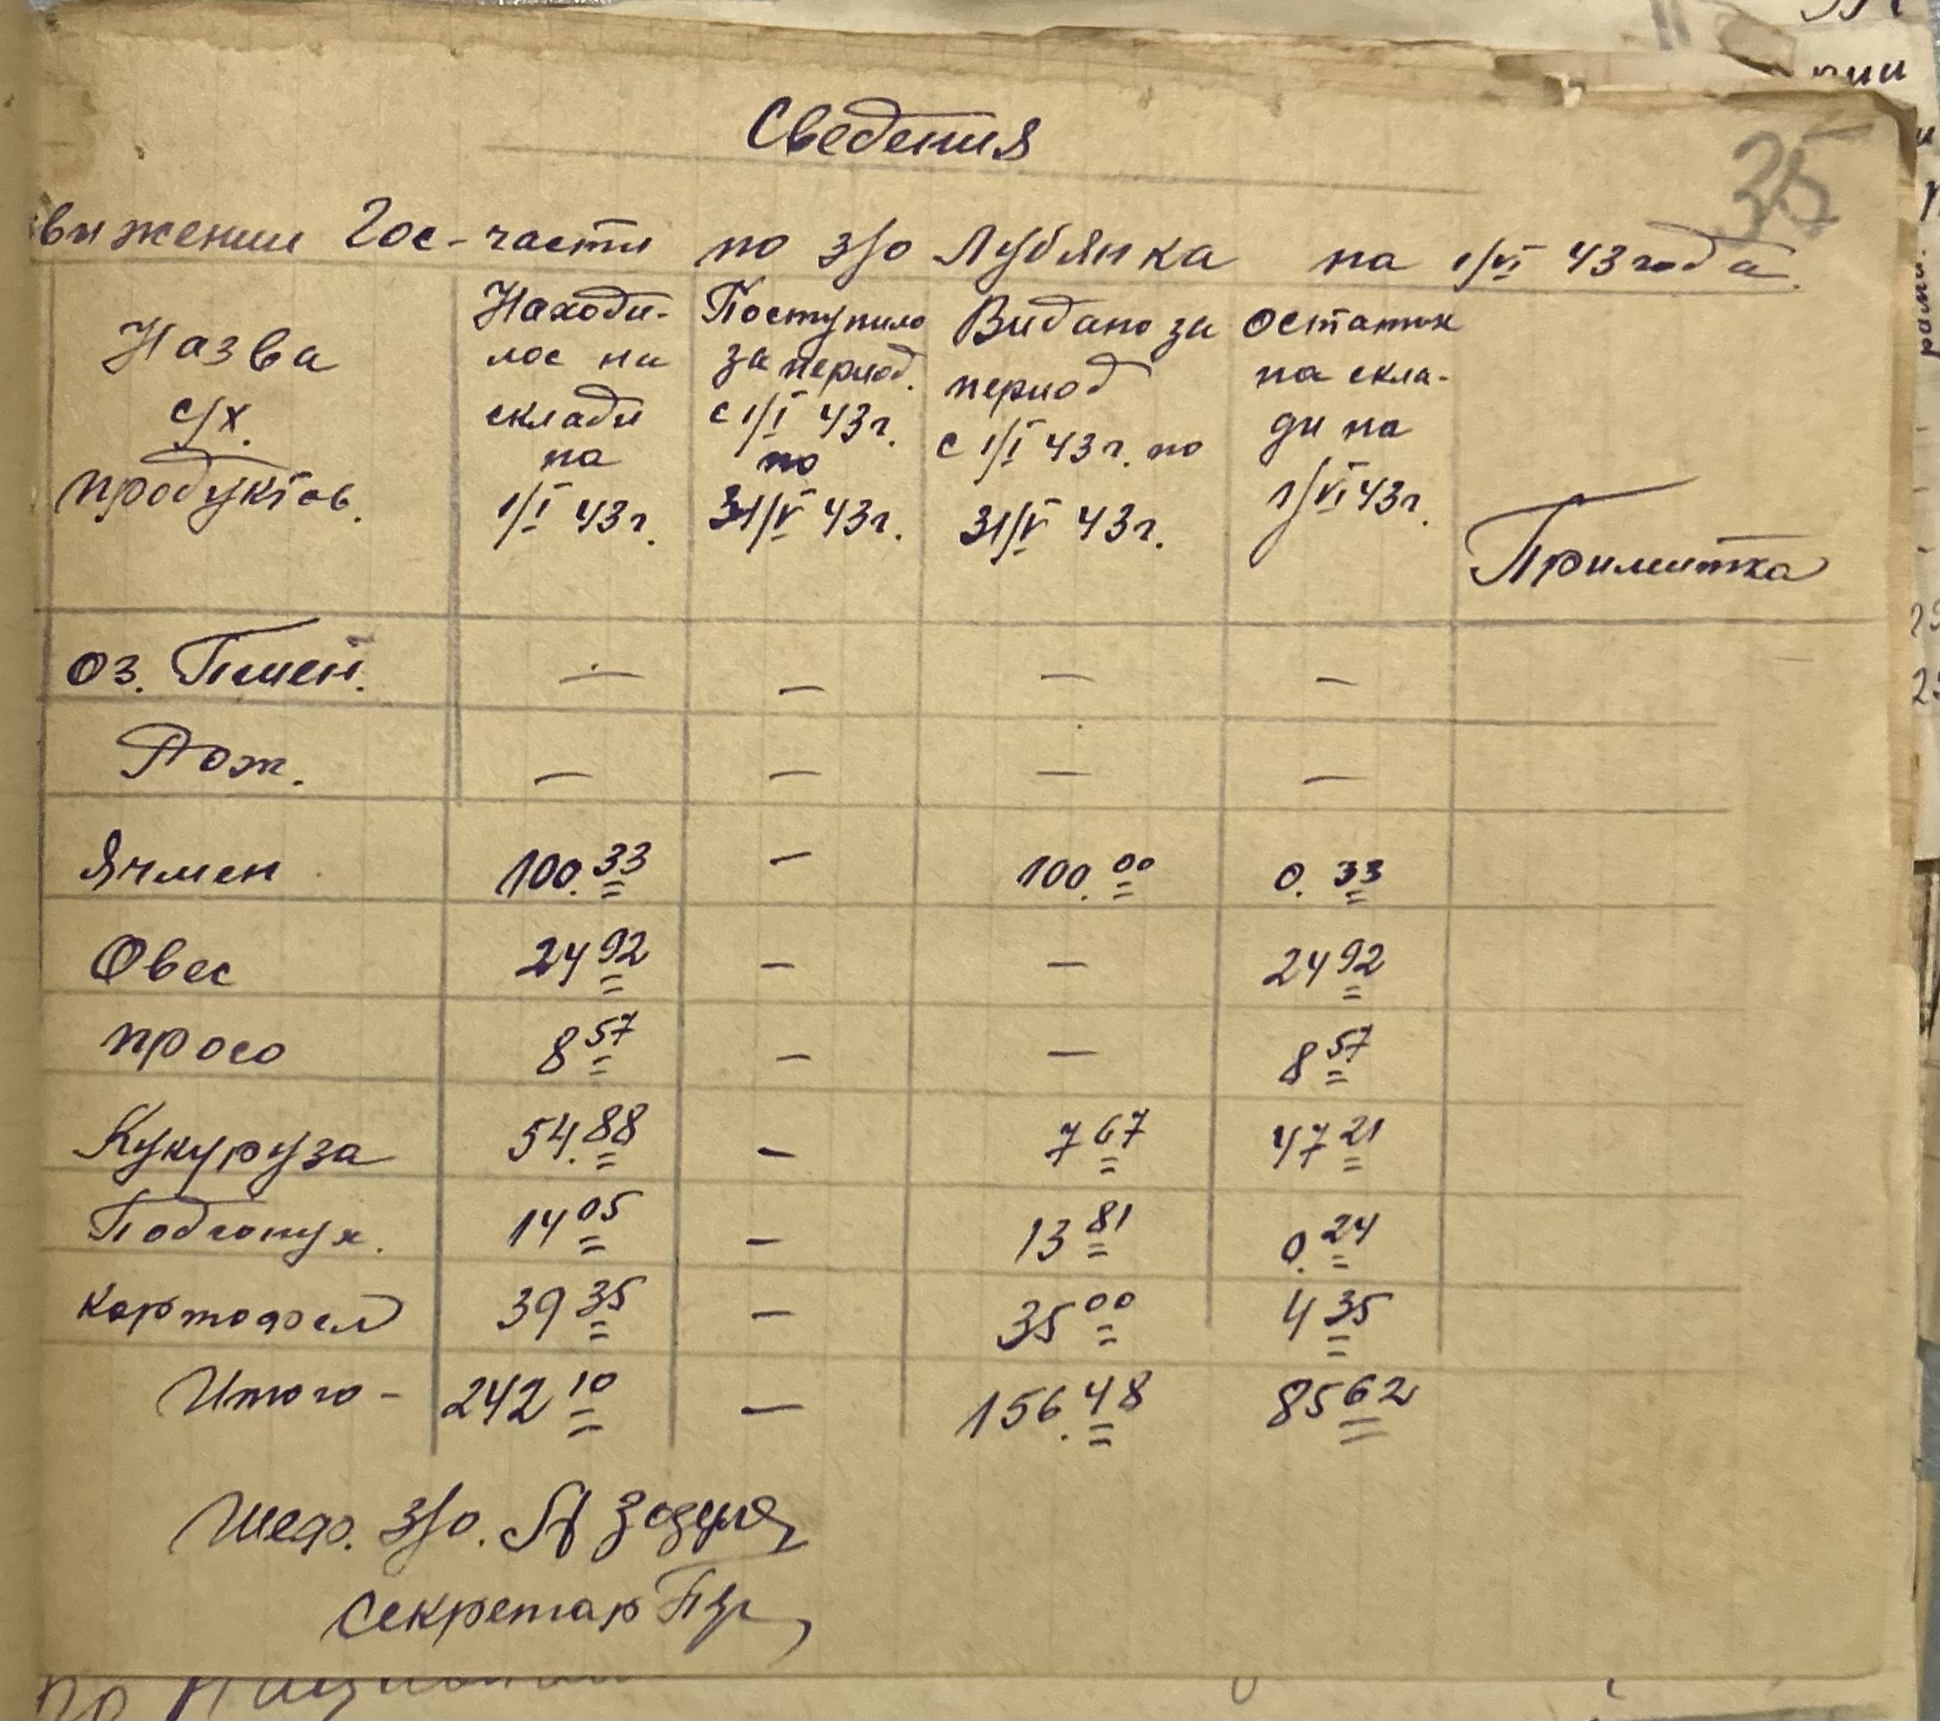 35
Сведения
вижении Гос-части по з/о Лубянка на 1/VI 43 года.
Назва с/х. продуктов.
Находи-
лос на
склади
на
1/I 43 г.
Поступило
за период.
с 1/I 43 г.
по
31/V 43 г.
Видано за
период
с 1/I 43 г. по
31/V 43 г.
Остаток
на скла-
ди на
1/VI 43 г.
Примитка
Оз. Пшен. — — — —
Рож. — — — —
Ячмен 100.33 — 100.00 0.33
Овес 24 92 — — 24 92
просо 8 57 — — 8 57
Кукуруза 54.88 — 7 67 47 21
14 05 — 13 81 0.24
Картофел 39 35 — 35 00 4 35
Итого - 242 10 — 156.48 85 62
Шеф. з/о.
Секретар
по